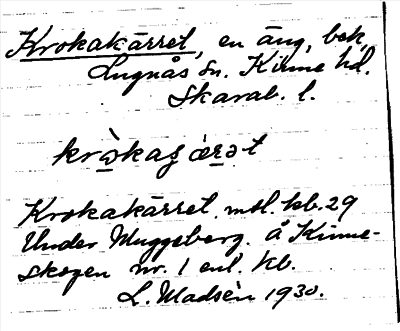 Krokakärret, en äng, bek,
Lugnås sn. Kinne hd.
Skarab. l.
kròkaʂ æ̀rət
Krokakärret, mtl. kb. 29
Under Muggeberg. å Kinne-
skogen nr. 1 enl. kb.
L. Madsén 1930.